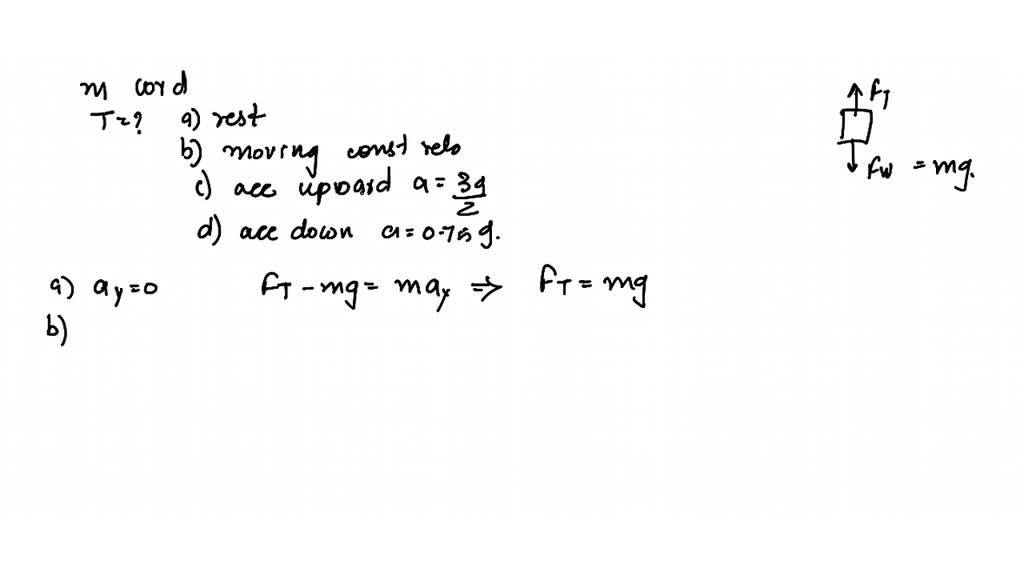 m cord
T=? a) rest
b) moving const velo
c) acc upward a = 3g/2
d) acc down a = 0.75g.
F_T
F_W = mg.
a) a_y = 0 F_T - mg = ma_y ⇒ F_T = mg
b)